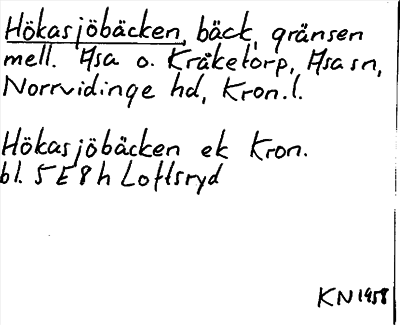 Hökasjöbäcken, bäck, gränsen
mell. Asa o. Kråketorp, Asa sn,
Norrvidinge hd, Kron.l.
Hökasjöbäcken ek Kron.
bl. 5E8h Loftsryd
KN 1958